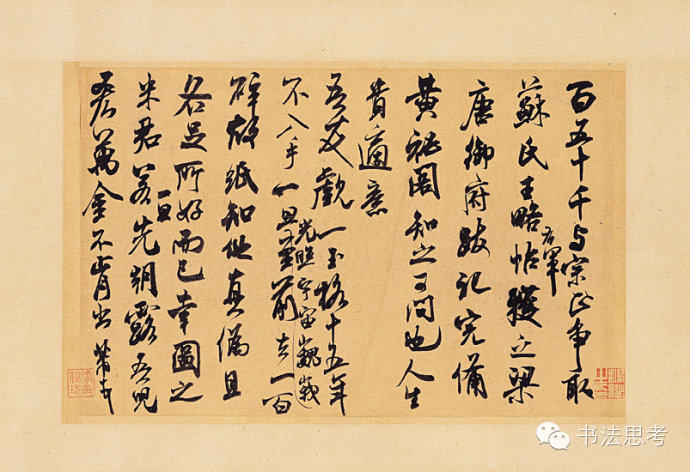 百五十千与宗正争取
蘇氏王略帖右軍獲之梁
唐御府跋记完備
黄秘閣知之可问也人生
貴適意
吾友覷一玉格十五年
不入手一旦光照宇宙巍峩至前去一百
碎故纸知他真偽且
各足所好而已幸圖之
米君若一旦先朝露吾兒
吝萬金不肯出芾
书法思考